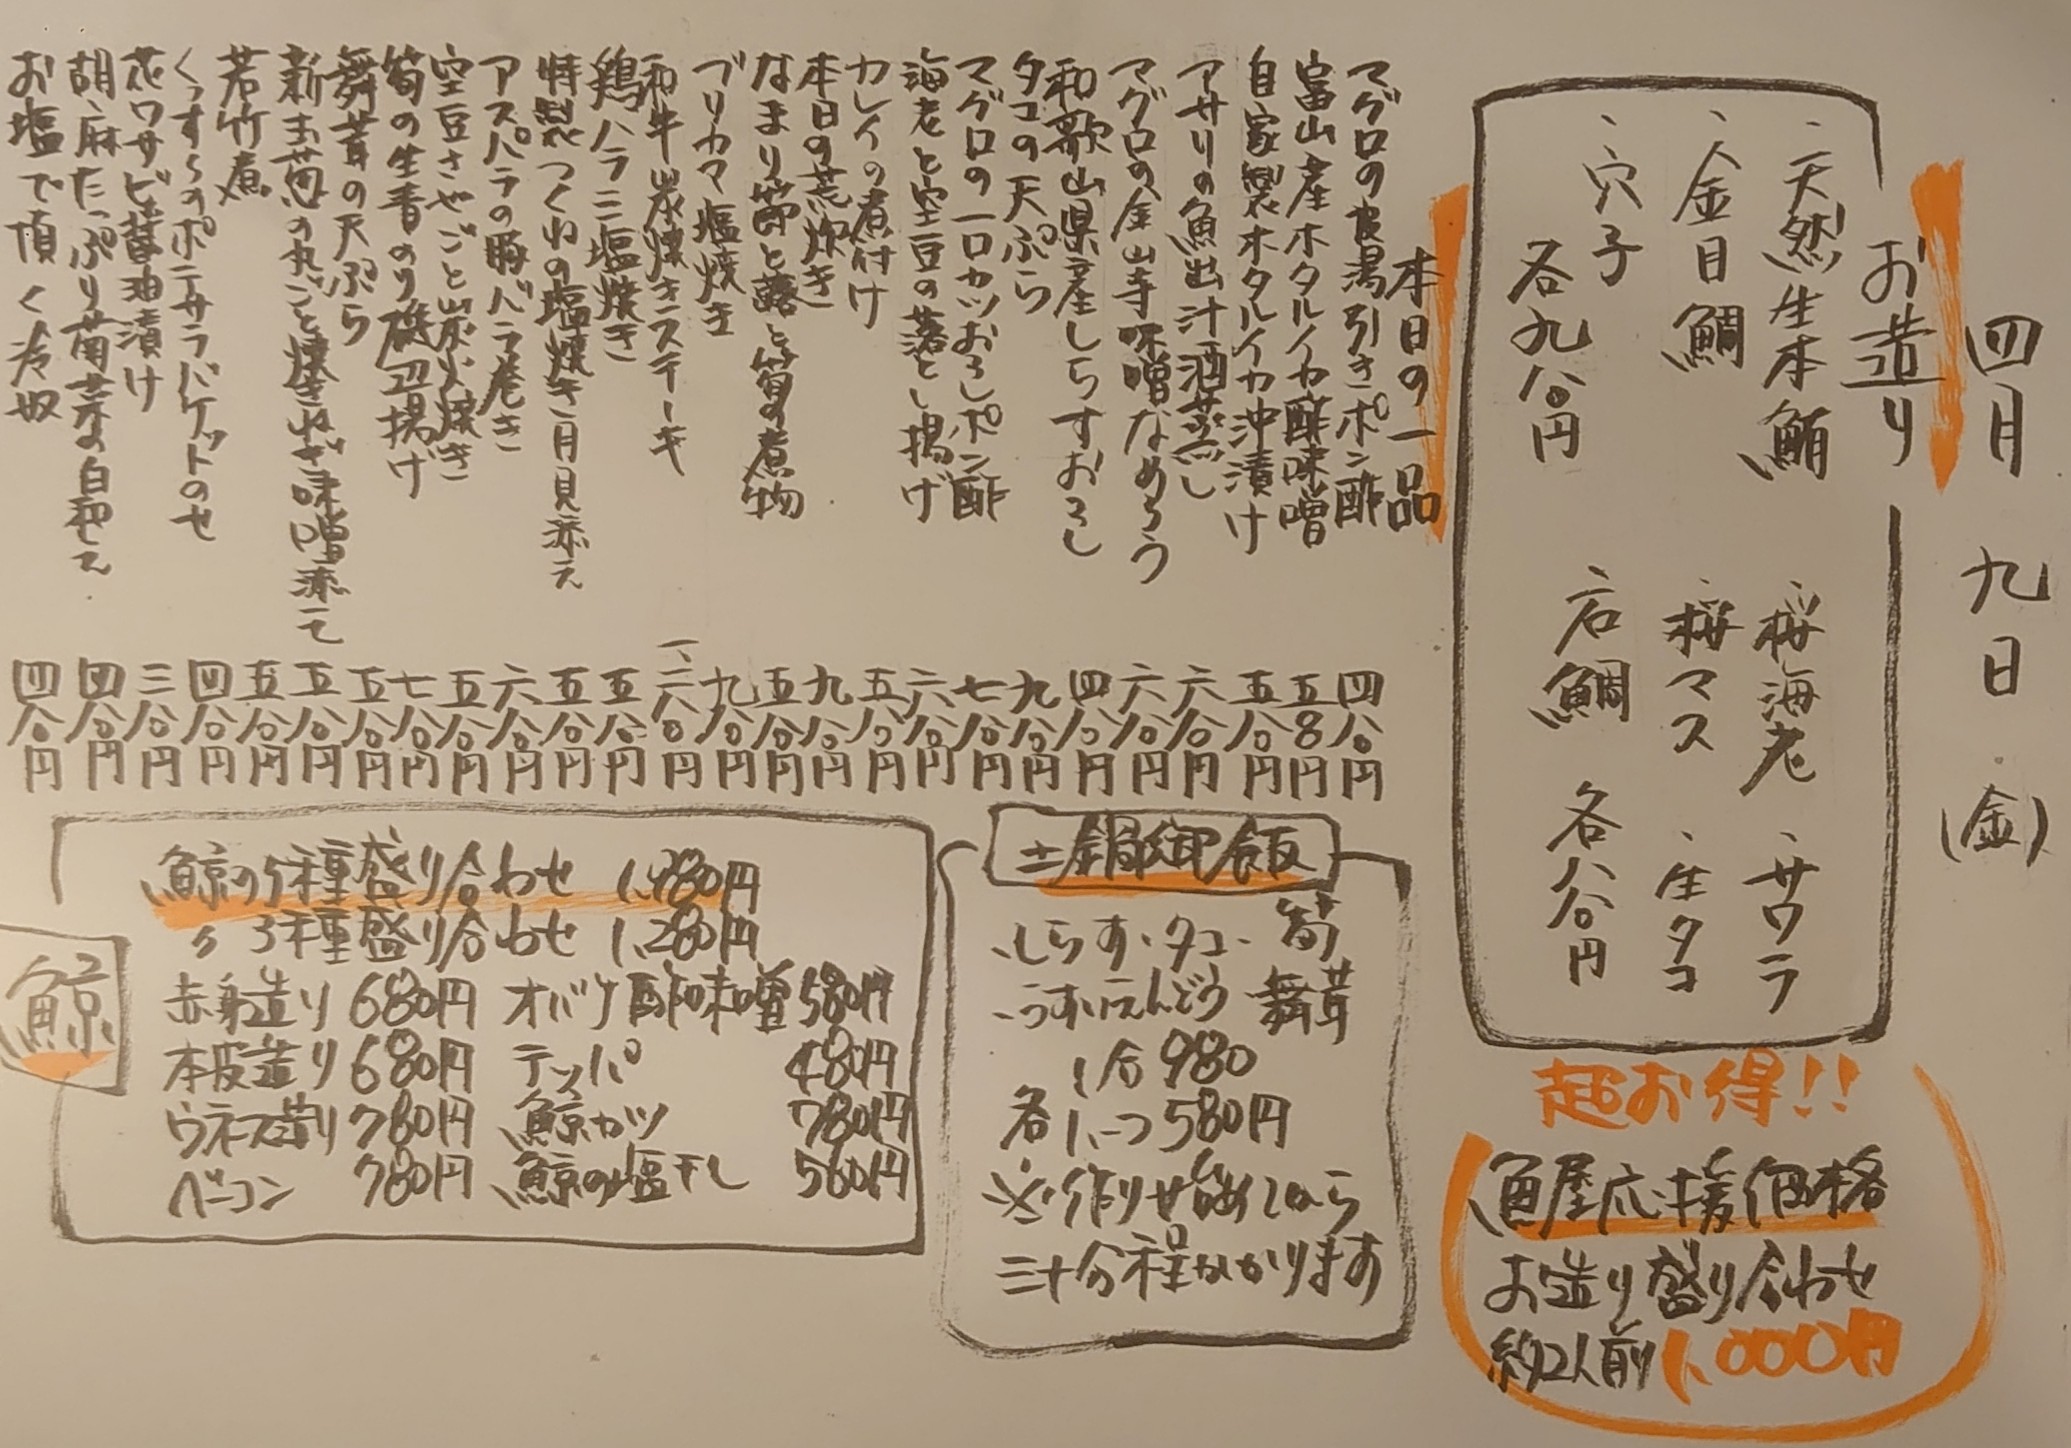 四月九日(金)
お造り
、天然生本鮪
、金目鯛
、穴子
各九八〇円
、桜海老、サワラ
、桜マス、生タコ
、石鯛
各八八〇円
超お得!!
魚屋応援価格
お造り盛り合わせ
約2人前1,000円
本日の一品
マグロの皮湯引きポン酢 四八〇円
富山産ホタルイカ酢味噌 五80円
自家製ホタルイカ沖漬け 五八〇円
アサリの魚出汁酒蒸し 六八〇円
マグロの金山寺味噌なめろう 六八〇円
和歌山県産しらすおろし 四八〇円
タコの天ぷら 九八〇円
マグロの一口カツおろしポン酢 七八〇円
海老と空豆の落とし揚げ 六八〇円
カレイの煮付け 五八〇円
本日の荒炊き 九八〇円
なまり節と蕗と筍の煮物 五八〇円
ブリカマ塩焼き 九八〇円
和牛炭焼きステーキ 八〇円
鶏ハラミ塩焼き 五八〇円
特製つくねの塩焼き月見添え 五八〇円
アスパラの豚バラ巻き 六八〇円
空豆さやごと炭火焼き 五八〇円
筍の生青のり磯辺揚げ 七八〇円
舞茸の天ぷら 五八〇円
新玉葱の丸ごと焼きねぎ味噌添えて 五八〇円
若竹煮 五八〇円
くんすのポテサラバケットのせ 四八〇円
花ワサビ醤油漬け 三八〇円
胡麻たっぷり菊菜の白和え 四八〇円
お塩で頂く冷奴 四八〇円
土鍋御飯
、しらす、タコ、筍
、うすいえんどう、舞茸
1合980
各1、つ580円
※作り始めてから
三十分程かかります
鯨
鯨の5種盛り合わせ 1,780円
〃3種盛り合わせ 1,280円
赤身造り 680円 オバケ酢味噌 580円
本皮造り 680円 テッパ 480円
ウネス造り 780円 鯨カツ 780円
ベーコン 780円 鯨の塩干し 560円